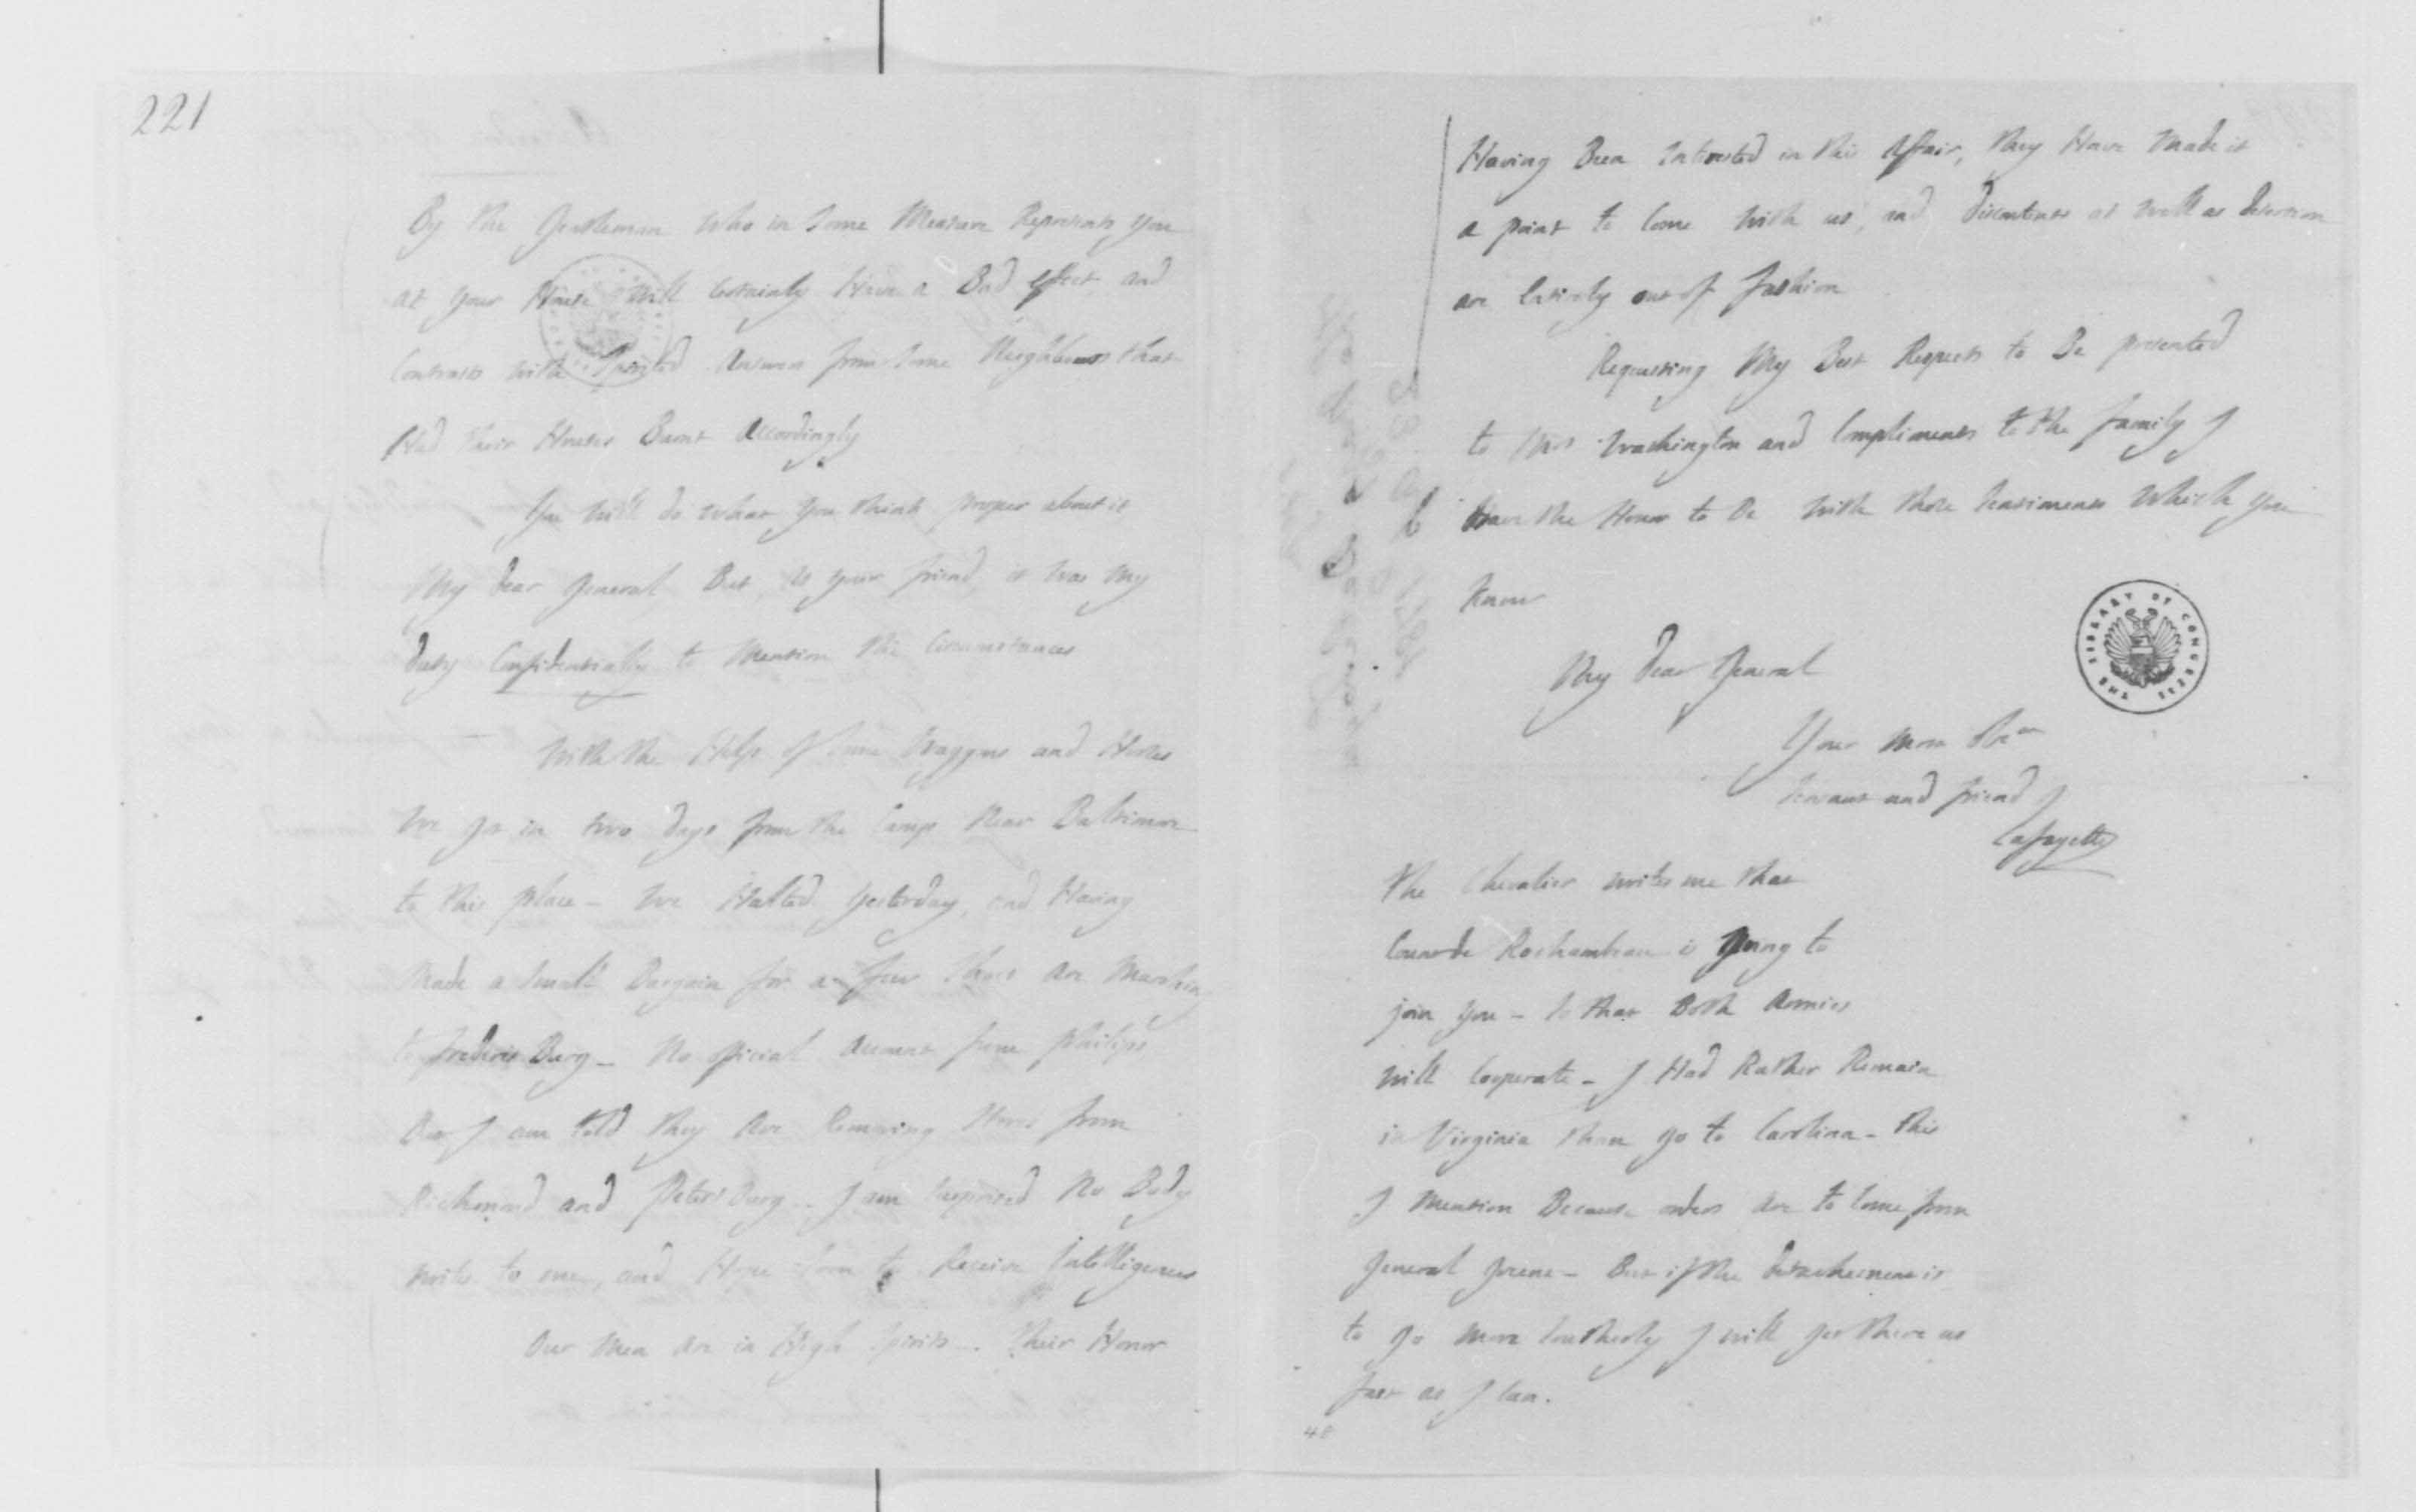 221
By the Gentleman who in Some Measure Represents you
at your House will Certainly Have a Bad effect, and
Contrasts with Spirited Answers from Some Neighbours that
Had their Houses Burnt Accordingly
You will do what you think proper about it
My dear General But, as your friend, it was My
duty Confidentially to Mention the Circumstances
With the Help of Some Waggons and Horses
We got in two days from the Camp Near Baltimore
to this place – We Halted Yesterday, and Having
Made a Small Bargain for a few Shoes are Marching
to Frederis Burg – No official Account from Philips
But I am told they are Removing Stores from
Richmond and Peters Burg – I am Surprised No Body
writes to me, and Hope Soon to Receive Intelligences
Our Men are in High Spirits – Their Honor
Having Been Interested in this Affair, they Have Made it
a point to Come with us, and discontents as well as desertion
are Entirely out of fashion
Requesting My Best Respects to Be presented
to Mrs Washington and Compliments to the family I
Have the Honor to Be with those Sentiments Which you
know
My dear General
Your Most
Servant and friend
Lafayette
THE LIBRARY OF CONGRESS
The Chevalier writes me that
Count de Rochambeau is Going to
join you – So that Both Armies
will Cooperate – I Had Rather Remain
in Virginia than go to Carolina – this
I Mention Because orders are to Come from
General Greene – But if the detachement is
to go More Southerly I will get there as
fast as I Can.
40